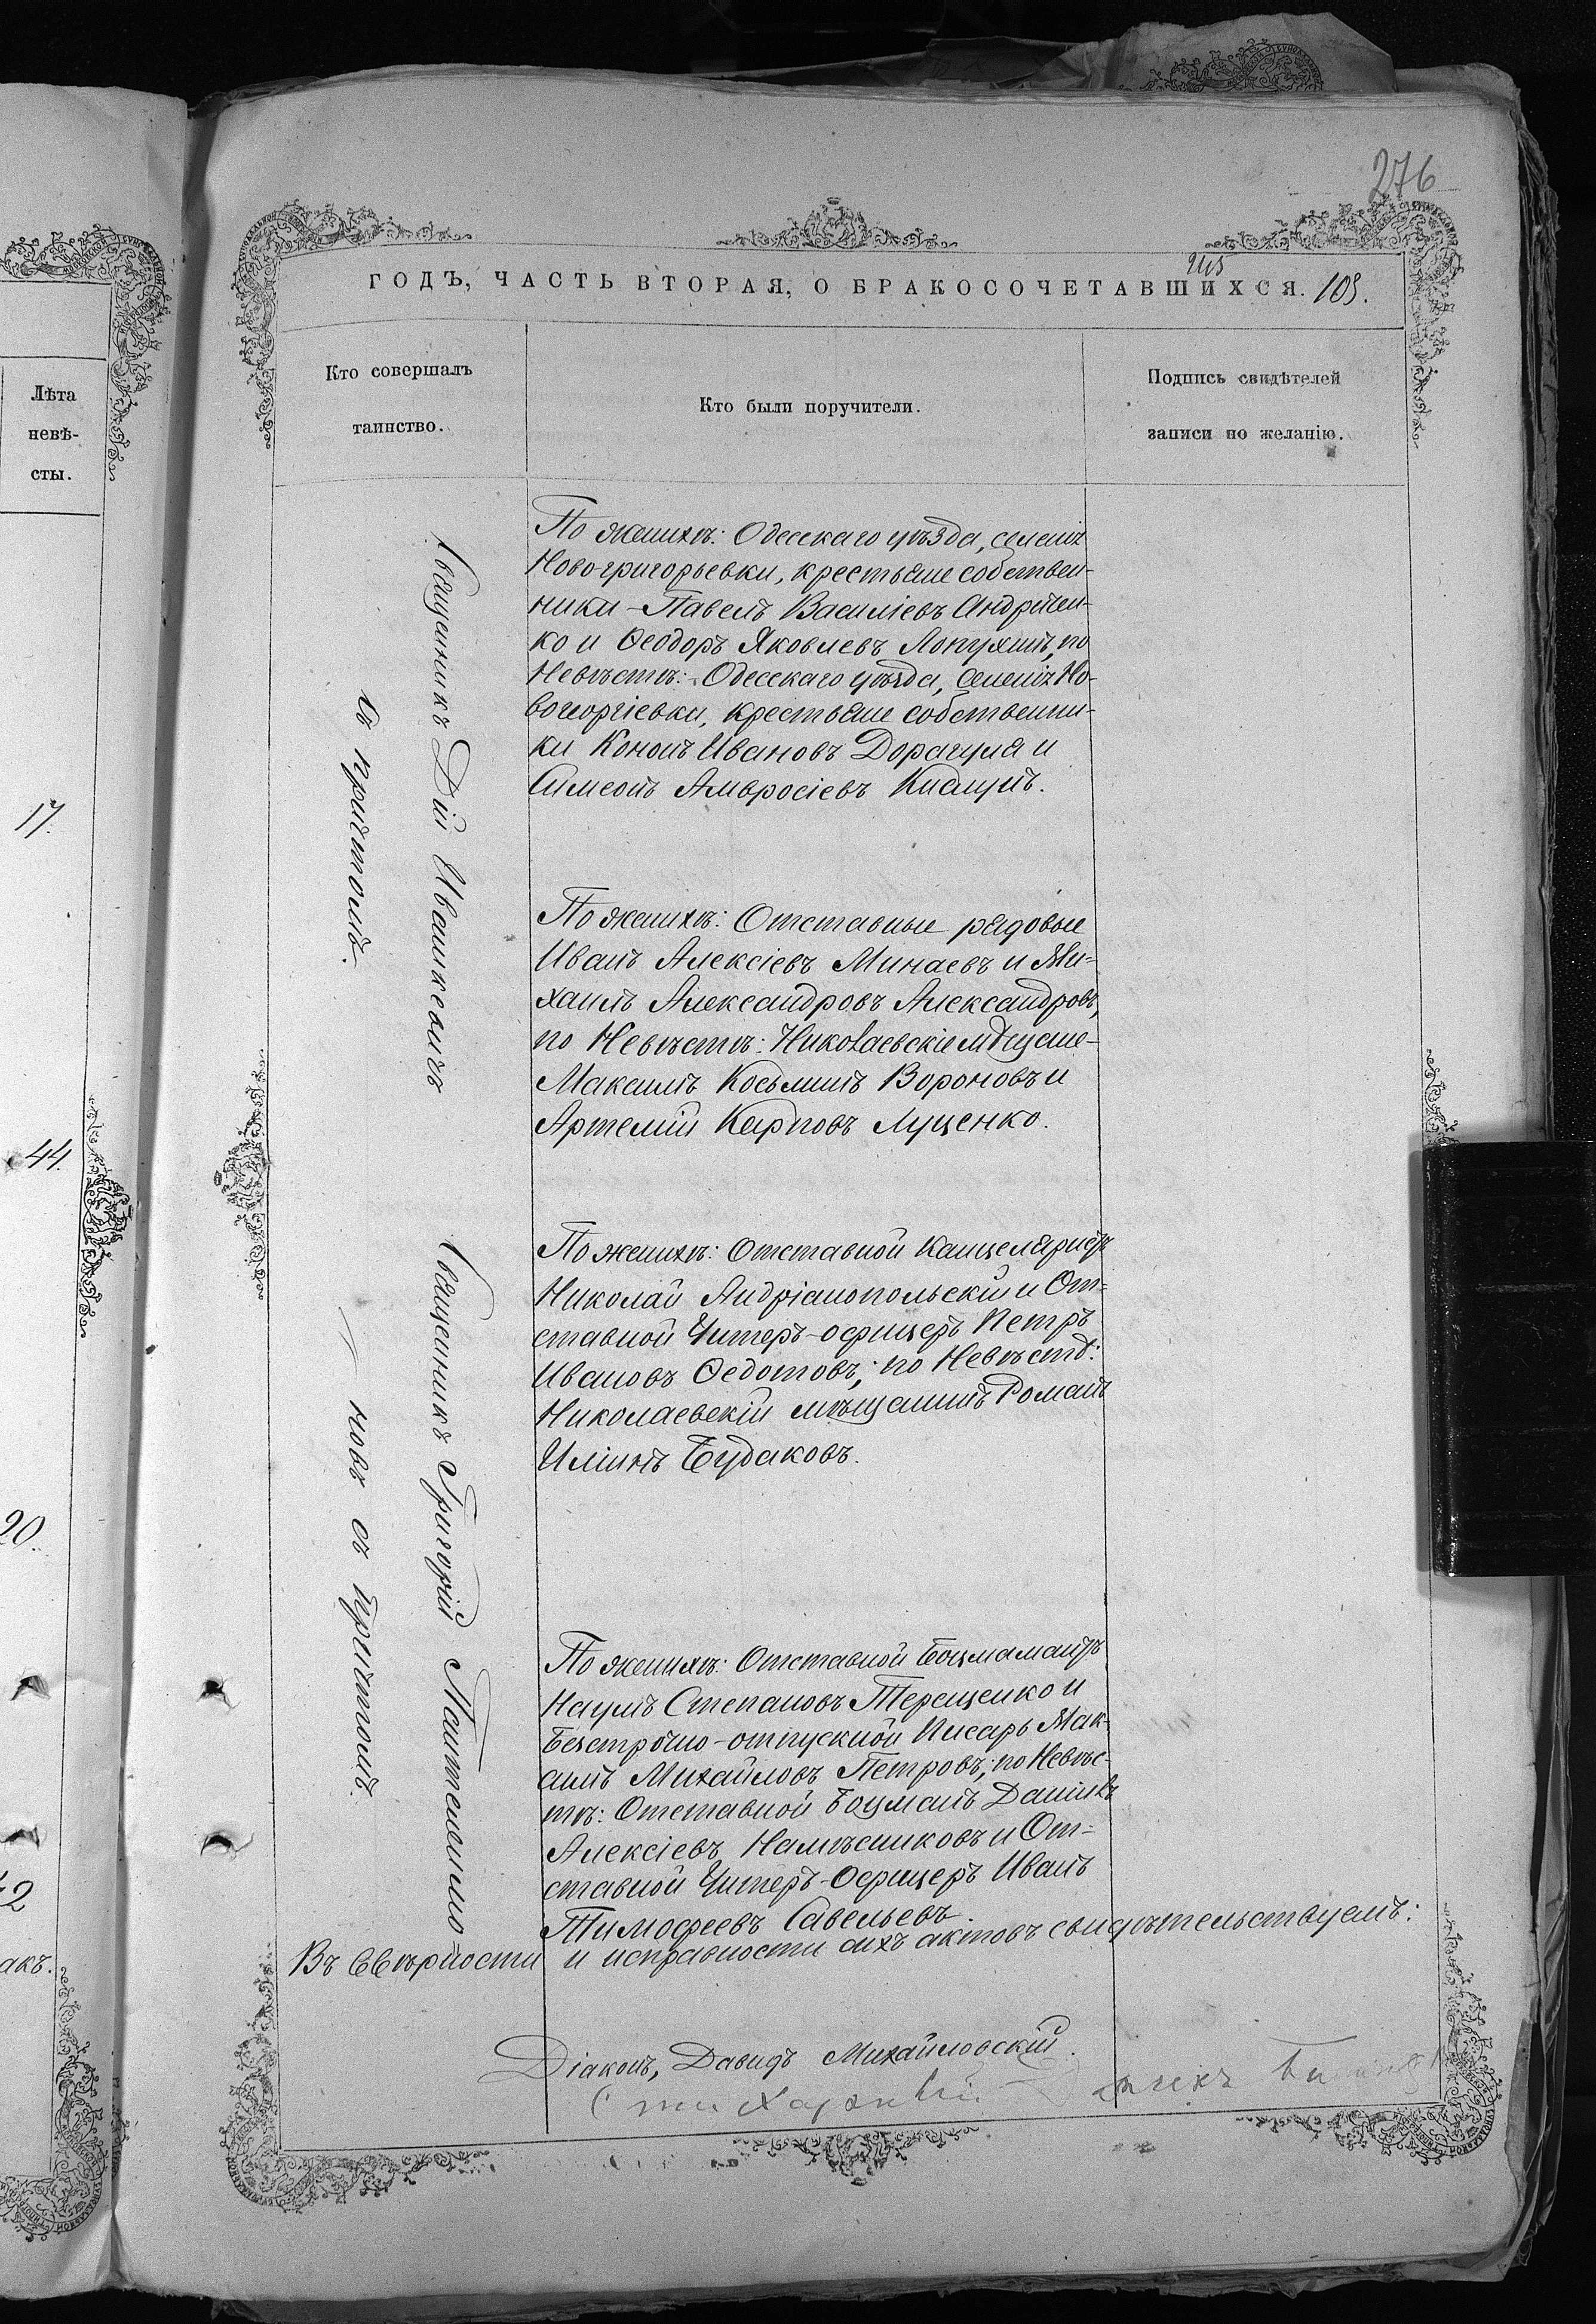 276
ГОДЪ, ЧАСТЬ ВТОРАЯ, О БРАКОСОЧЕТАВШИХСЯ. 109.
Лѣта
невѣ-
сты.
17.
44.
20.
42
акъ.
Кто совершалъ
таинство.
Кто были поручители.
Подпись свидѣтелей
записи по желанію.
Священникъ Дій Ивашкевичъ
съ причтомъ.
Священникъ Григорій Пантелемо-
новъ съ причтомъ.
По женихѣ: Одесскаго уѣзда, селенія
Новогригорьевки, крестьяне собствен-
ники - Павелъ Василіевъ Андріен-
ко и Ѳеодоръ Яковлевъ Лопухинъ, по
Невѣстѣ: Одесскаго уѣзда, Селенія Но-
вогеоргіевки, крестьяне собственни-
ки Кононъ Ивановъ Дорагуля и
Симеонъ Амвросіевъ Кислунъ.
По женихѣ: Отставные рядовые
Иванъ Алексіевъ Минаевъ и Ми-
хаилъ Александровъ Александровъ,
по Невѣстѣ: Николаевскіе мѣщане -
Максимъ Косьминъ Вороновъ и
Артемій Карповъ Луценко.
По женихѣ: Отставной Канцеляристъ
Николай Андріанопольскій и От-
ставной Унтеръ-офицеръ Петръ
Ивановъ Ѳедотовъ; по Невѣстѣ:
Николаевскій мѣщанинъ Романъ
Илiинъ Будаковъ.
По женихѣ: Отставной Боцманматъ
Наумъ Степановъ Терещенко и
Безсрочно-отпускной Писарь Мак-
симъ Михайловъ Петровъ; по Невѣс-
тѣ: Отставной Боцманъ Даніилъ
Алексіевъ Намѣсниковъ и От-
ставной Унтеръ-Офицеръ Иванъ
Тимофеевъ Савельевъ.
Въ вѣрности и исправности сихъ актовъ свидѣтельствуемъ:
Діаконъ, Давидъ Михайловскій.
Стихарный